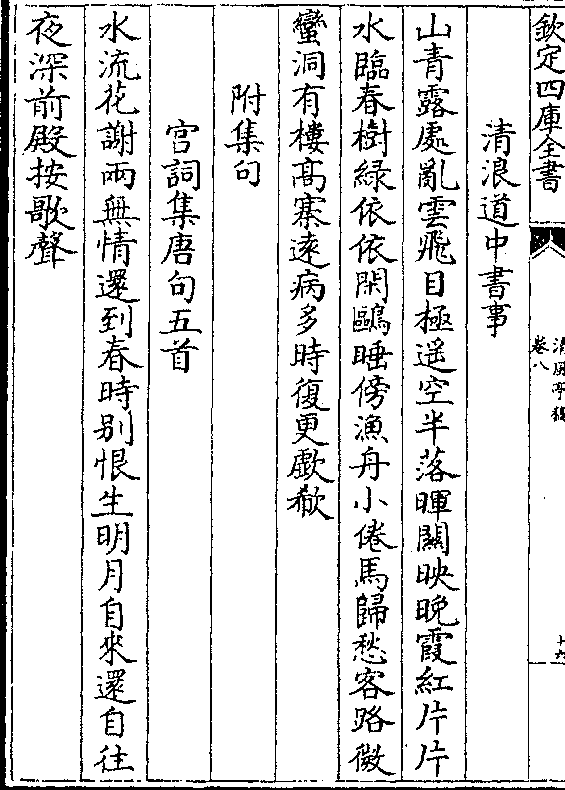 欽定四庫全書
清風亭稿
卷八
十六
清浪道中書事
山青露處亂雲飛目極遥空半落暉關映晚霞紅片片
水臨春樹綠依依閑鷗睡傍漁舟小倦馬歸愁客路微
蠻洞有樓高寨遠病多時復更歔欷
附集句
宫詞集唐句五首
水流花謝兩無情還到春時别恨生明月自來還自往
夜深前殿按歌聲